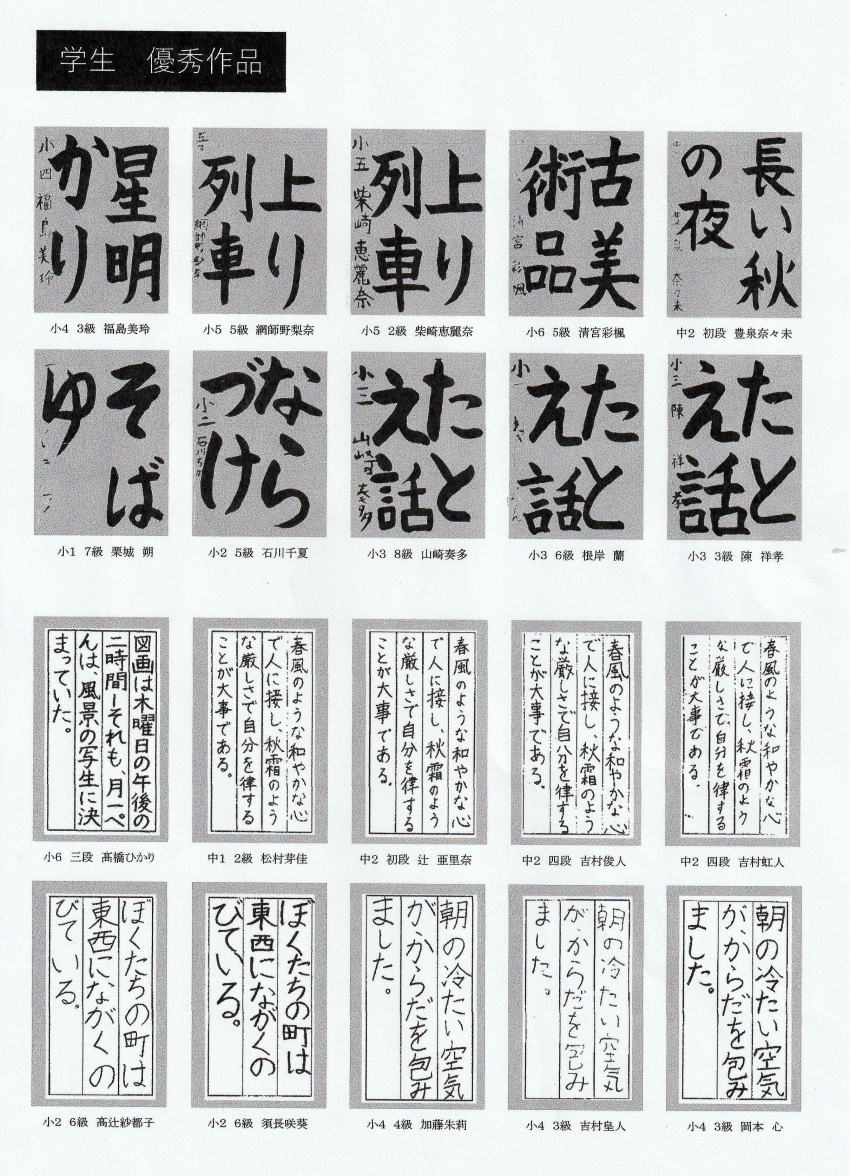 学生　優秀作品
長い秋
の夜
中2 初段 豊泉奈々未
古美
術品
小6 5級 清宮彩楓
上り
列車
小五 柴崎恵麗奈
小5 2級 柴崎恵麗奈
上り
列車
小5 5級 網師野梨奈
星明
かり
小四 福島美玲
小4 3級 福島美玲
たと
え話
小三 陳 祥孝
小3 3級 陳 祥孝
たと
え話
小3 6級 根岸 蘭
たと
え話
小三 山崎奏多
小3 8級 山崎奏多
なら
づけ
小二 石川ちか
小2 5級 石川千夏
そば
ゆ
小1 7級 栗城 朔
春風のような和やかな心
で人に接し、秋霜のよう
な厳しさで自分を律する
ことが大事である。
中2 四段 吉村虹人
春風のような和やかな心
で人に接し、秋霜のよう
な厳しさで自分を律する
ことが大事である。
中2 四段 吉村俊人
春風のような和やかな心
で人に接し、秋霜のよう
な厳しさで自分を律する
ことが大事である。
中2 初段 辻 亜里奈
春風のような和やかな心
で人に接し、秋霜のよう
な厳しさで自分を律する
ことが大事である。
中1 2級 松村芽佳
図画は木曜日の午後の
二時間ーそれも、月一ぺ
んは、風景の写生に決
まっていた。
小6 三段 髙橋ひかり
朝の冷たい空気
が、からだを包み
ました。
小4 3級 岡本 心
朝の冷たい空気
が、からだを包み
ました。
小4 3級 吉村皇人
朝の冷たい空気
が、からだを包み
ました。
小4 4級 加藤朱莉
ぼくたちの町は
東西にながくの
びている。
小2 6級 須長咲葵
ぼくたちの町は
東西にながくの
びている。
小2 6級 髙辻紗都子